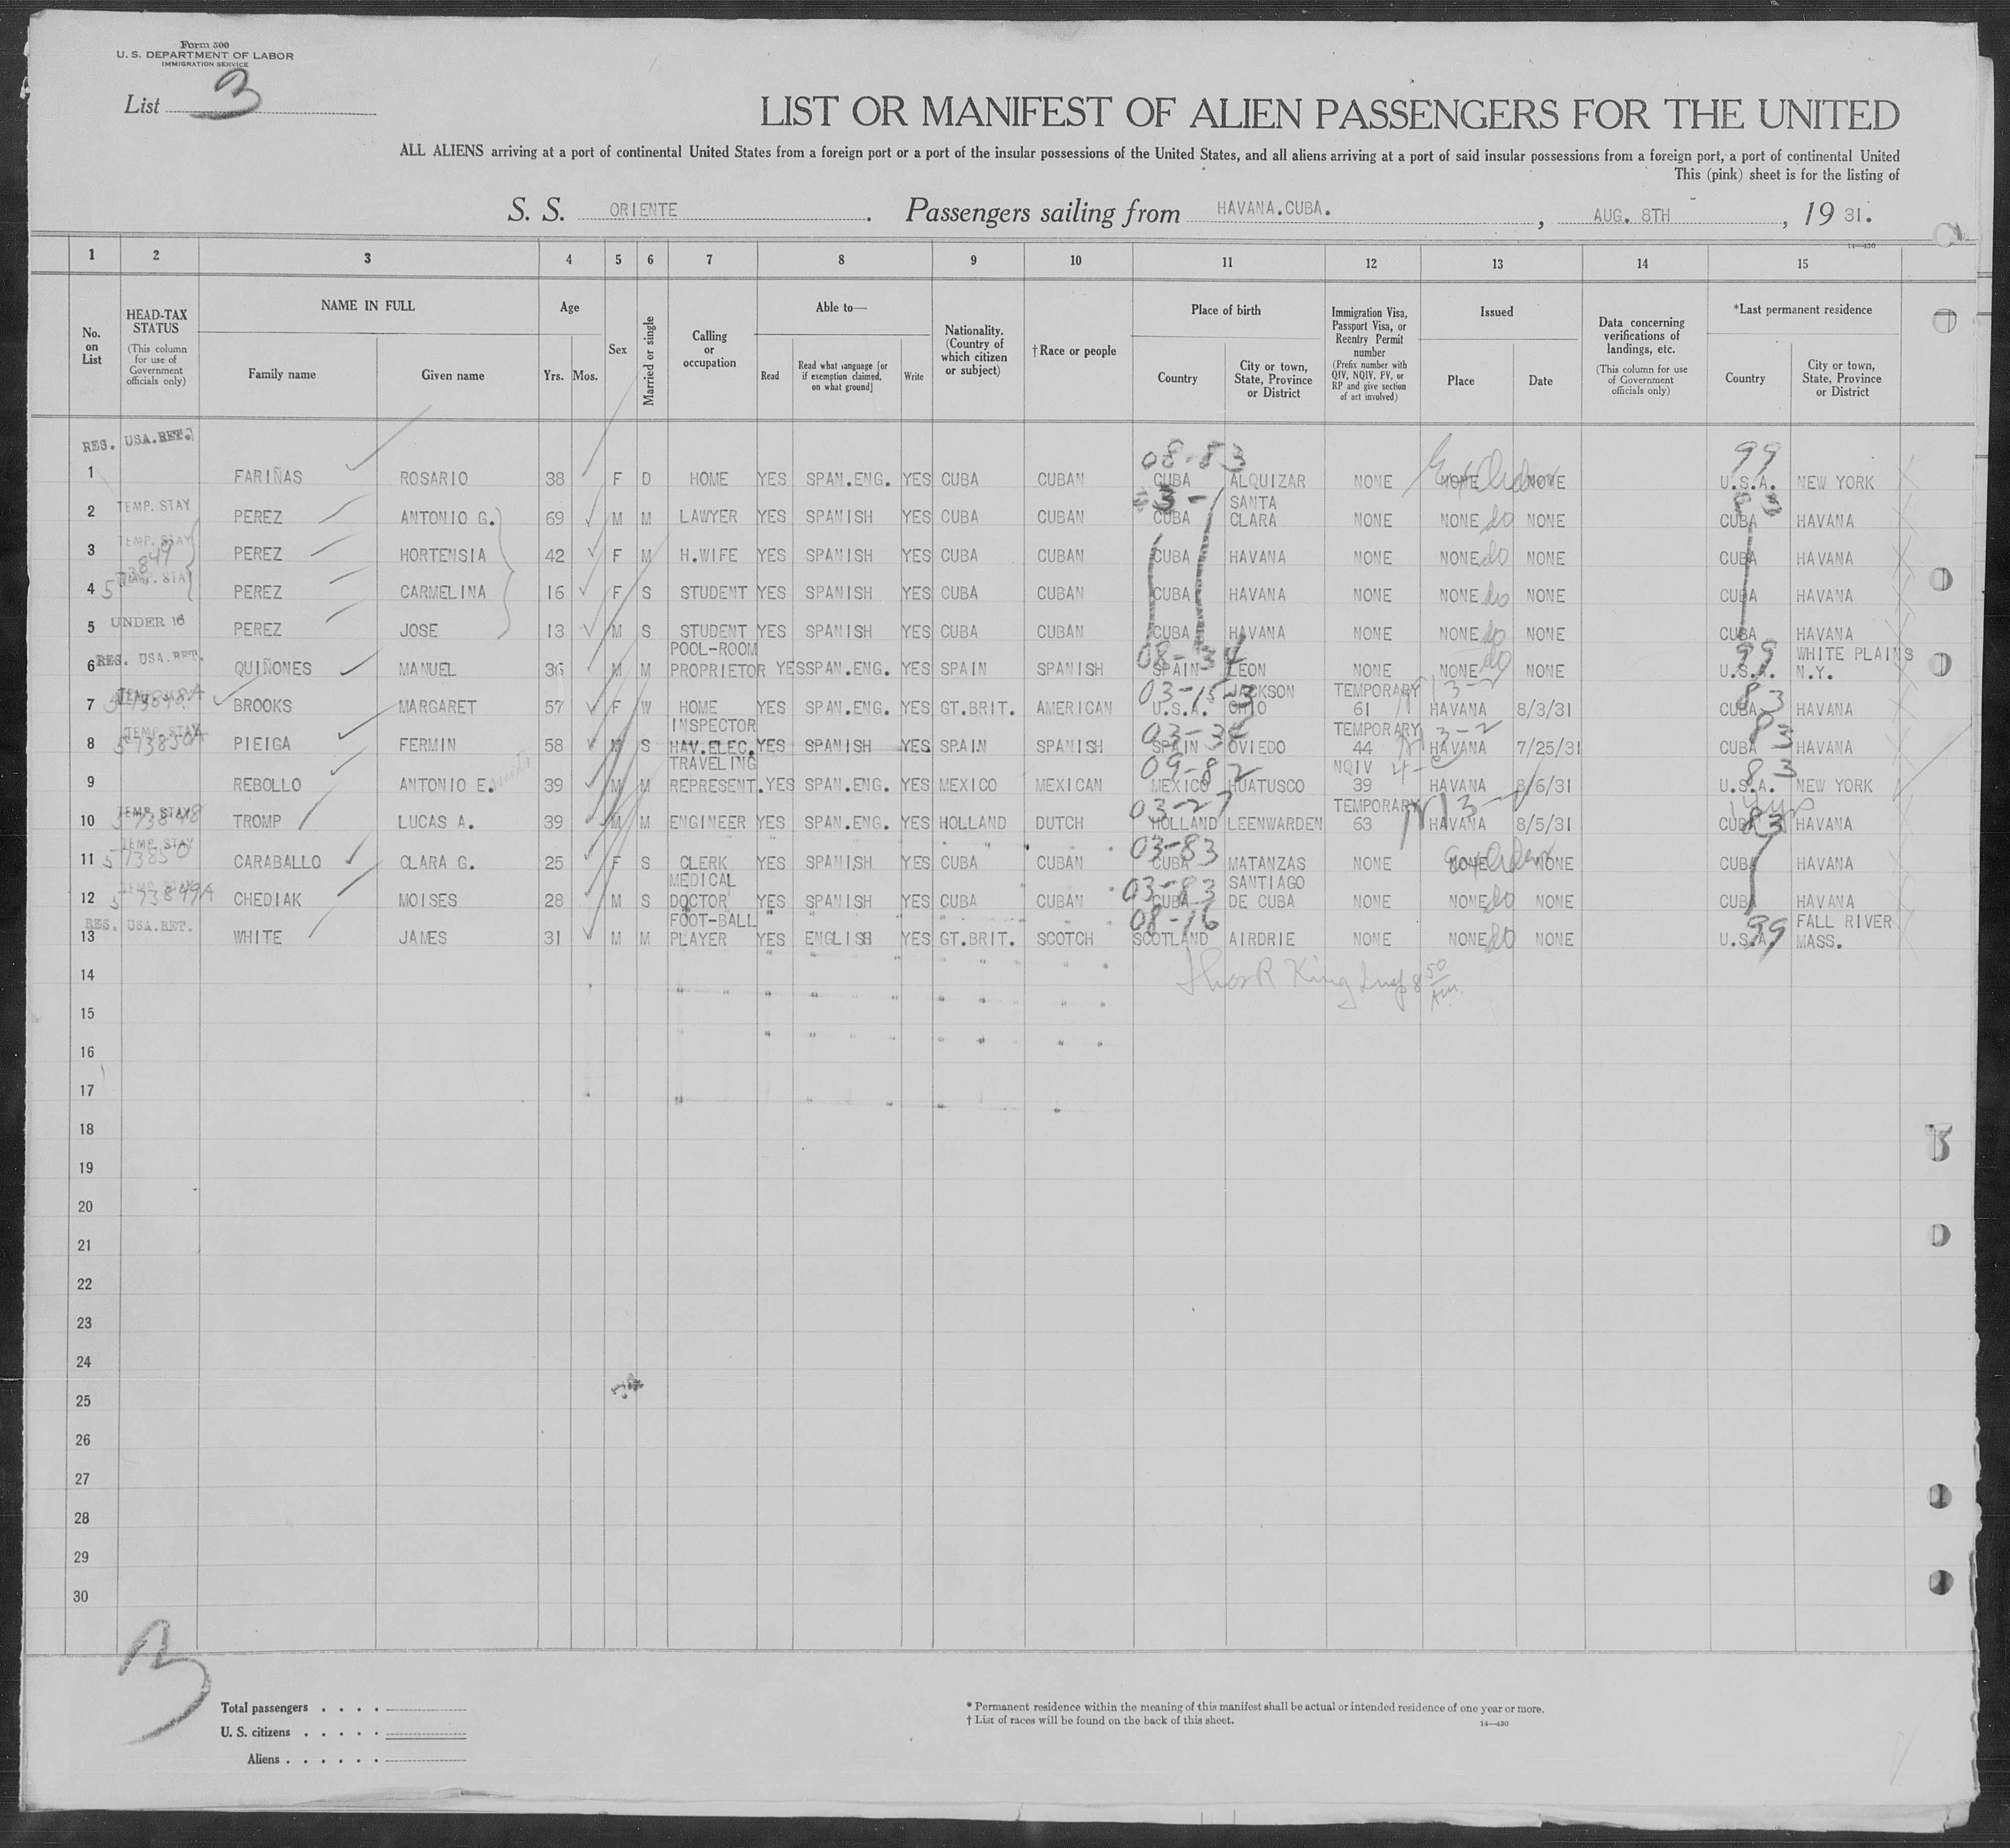 Form 500
U. S. DEPARTMENT OF LABOR
IMMIGRATION SERVICE
List 3
LIST OR MANIFEST OF ALIEN PASSENGERS FOR THE UNITED
ALL ALIENS arriving at a port of continental United States from a foreign port or a port of the insular possessions of the United States, and all aliens arriving at a port of said insular possessions from a foreign port, a port of continental United
This (pink) sheet is for the listing of
S. S. ORIENTE. Passengers sailing from HAVANA.CUBA. , AUG. 8TH , 19 31.
14—430
1 2 3 4 5 6 7 8 9 10 11 12 13 14 15
No. on List
HEAD-TAX STATUS (This column for use of Government officials only)
NAME IN FULL Family name Given name
Age Yrs. Mos.
Sex
Married or single
Calling or occupation
Able to— Read Read what language [or if exemption claimed, on what ground] Write
Nationality. (Country of which citizen or subject)
†Race or people
Place of birth Country City or town, State, Province or District
Immigration Visa, Passport Visa, or Reentry Permit number (Prefix number with QIV, NQIV, PV, or RP and give section of act involved)
Issued Place Date
Data concerning verifications of landings, etc. (This column for use of Government officials only)
*Last permanent residence Country City or town, State, Province or District
RES. USA.RET. 08-83 99
1 FARIÑAS ROSARIO 38 F D HOME YES SPAN.ENG. YES CUBA CUBAN CUBA ALQUIZAR NONE NONE NONE U.S.A. NEW YORK
2 TEMP. STAY PEREZ ANTONIO G. 69 M M LAWYER YES SPANISH YES CUBA CUBAN CUBA SANTA CLARA NONE NONE do NONE CUBA 83 HAVANA
3 TEMP. STAY PEREZ HORTENSIA 42 F M H.WIFE YES SPANISH YES CUBA CUBAN CUBA HAVANA NONE NONE do NONE CUBA HAVANA
4 TEMP. STAY PEREZ CARMELINA 16 F S STUDENT YES SPANISH YES CUBA CUBAN CUBA HAVANA NONE NONE do NONE CUBA HAVANA
5 UNDER 16 PEREZ JOSE 13 M S STUDENT YES SPANISH YES CUBA CUBAN CUBA HAVANA NONE NONE do NONE CUBA HAVANA
6 RES. USA.RET. QUIÑONES MANUEL 36 M M POOL-ROOM PROPRIETOR YES SPAN.ENG. YES SPAIN SPANISH 08-34 SPAIN LEON NONE NONE do NONE 99 U.S.A. WHITE PLAINS N.Y.
7 BROOKS MARGARET 57 F W HOME YES SPAN.ENG. YES GT.BRIT. AMERICAN 03-153 U.S.A. JACKSON OHIO TEMPORARY 61 3-2 HAVANA 8/3/31 83 CUBA HAVANA
8 TEMP. STAY PIEIGA FERMIN 58 M S INSPECTOR HAV.ELEC. YES SPANISH YES SPAIN SPANISH 03-34 SPAIN OVIEDO TEMPORARY 44 3-2 HAVANA 7/25/31 83 CUBA HAVANA
9 REBOLLO ANTONIO E. 39 M M TRAVELING REPRESENT. YES SPAN.ENG. YES MEXICO MEXICAN 09-82 MEXICO HUATUSCO NQIV 39 HAVANA 8/6/31 83 U.S.A. NEW YORK
10 TEMP. STAY TROMP LUCAS A. 39 M M ENGINEER YES SPAN.ENG. YES HOLLAND DUTCH 03-27 HOLLAND LEENWARDEN TEMPORARY 63 HAVANA 8/5/31 CUBA 83 HAVANA
11 TEMP. STAY 573850 CARABALLO CLARA G. 25 F S CLERK YES SPANISH YES CUBA CUBAN 03-83 CUBA MATANZAS NONE NONE NONE CUBA HAVANA
12 TEMP. STAY 573849A CHEDIAK MOISES 28 M S MEDICAL DOCTOR YES SPANISH YES CUBA CUBAN 03-83 CUBA SANTIAGO DE CUBA NONE NONE do NONE CUBA HAVANA
13 RES. USA.RET. WHITE JAMES 31 M M FOOT-BALL PLAYER YES ENGLISH YES GT.BRIT. SCOTCH 08-16 SCOTLAND AIRDRIE NONE NONE do NONE U.S.A. 99 FALL RIVER MASS.
14 King Insp 8 50 AM
15
16
17
18
19
20
21
22
23
24
25
26
27
28
29
30
3
Total passengers . . . .
U. S. citizens . . . . .
Aliens . . . . . .
* Permanent residence within the meaning of this manifest shall be actual or intended residence of one year or more.
† List of races will be found on the back of this sheet.
14—430